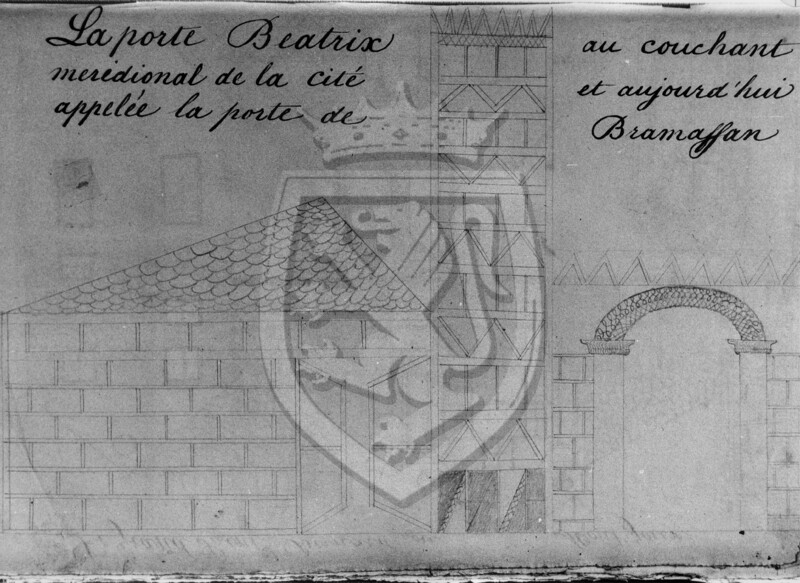 La porte Beatrix au couchant
meredional de la cité et aujourd'hui
appelée la porte de Bramassan